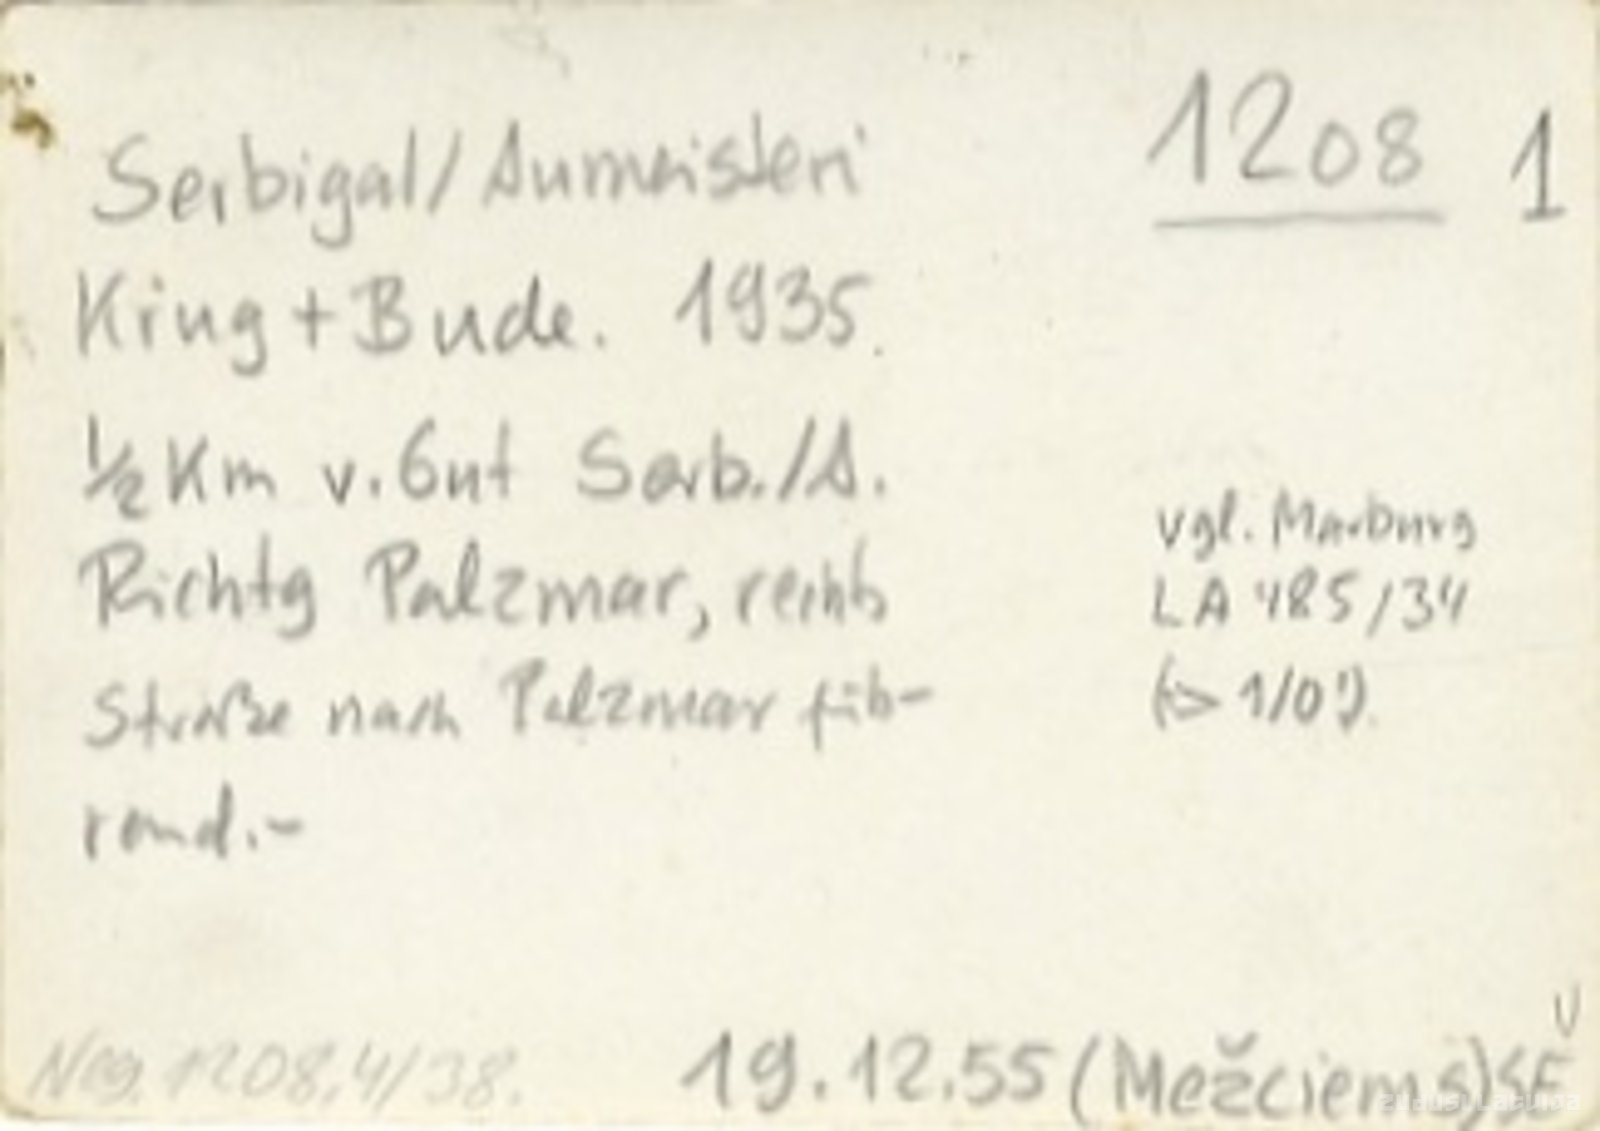 1208 1
Serbigal/Aumeisteri
Krug + Bude. 1935.
1/2 Km v. Gut Serb./A.
Richtg Palzmar, rechts
Straße nach Palzmar füh-
rend.-
vgl. Marburg
LA 485/34
(> 1/0!)
Neg. 1208, 4/38.
19.12.55 (Mežciems) SE
V
zudusilatvija